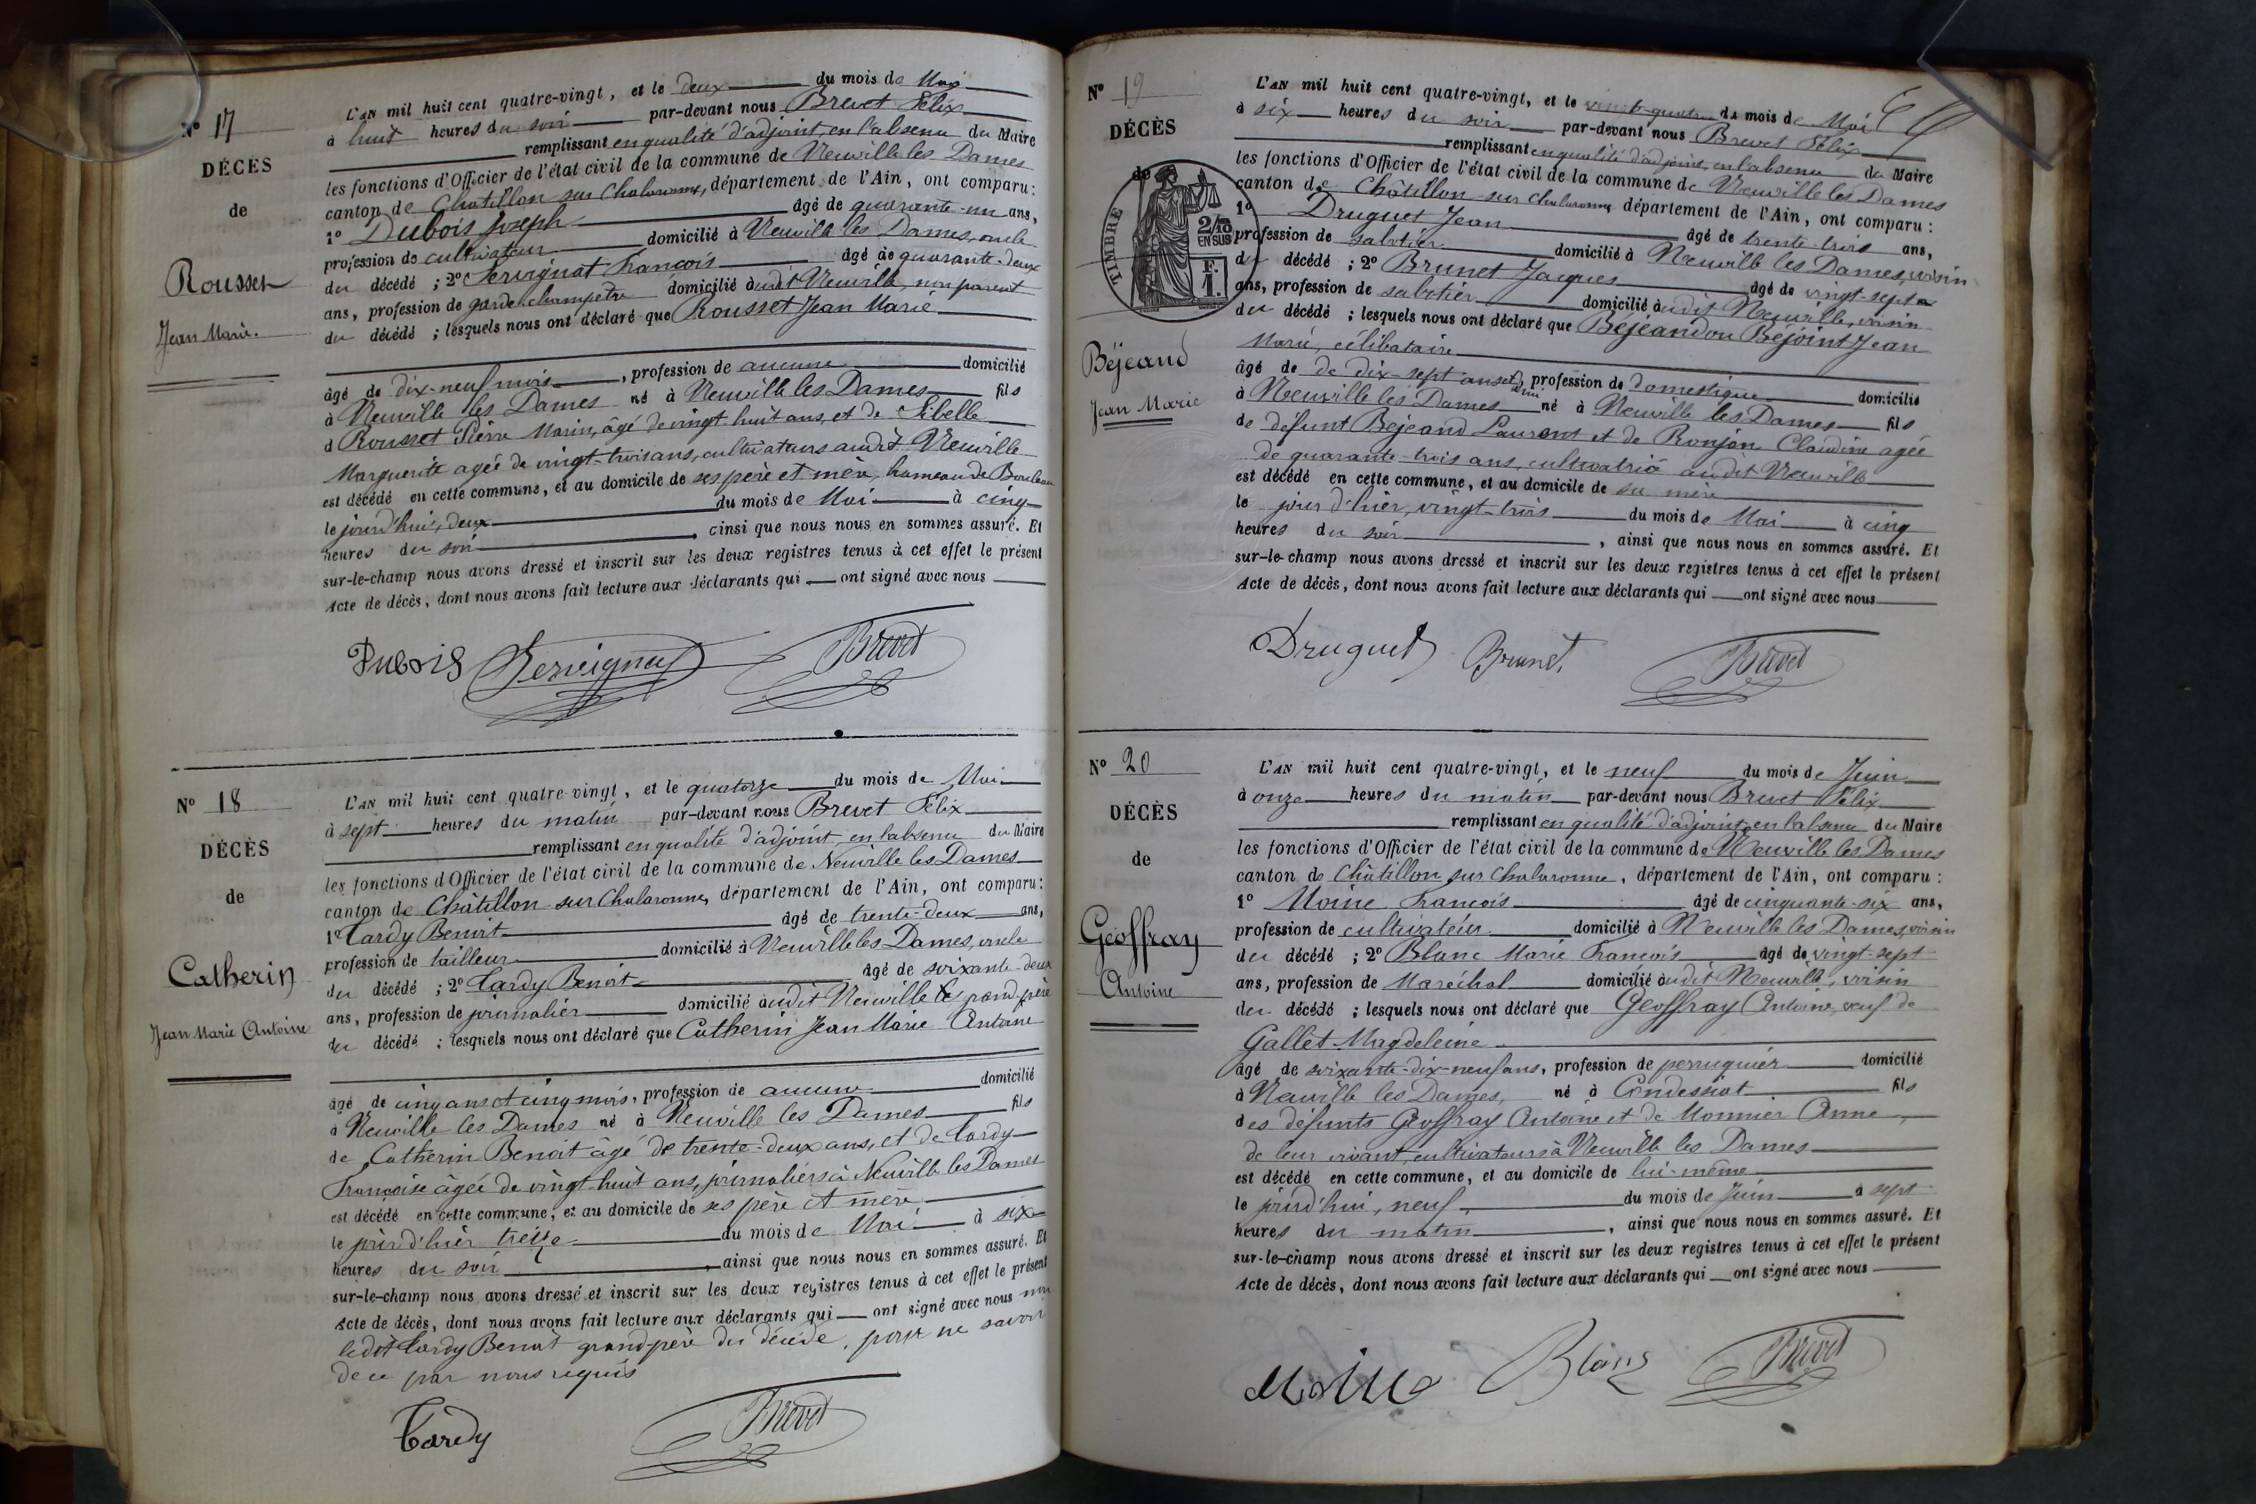 N° 17
DÉCÈS
de
Rousset
Jean Marie.
L'AN mil huit cent quatre-vingt, et le deux du mois de Mai
à huit heures du soir par-devant nous Brevet Félix
remplissant en qualité d'adjoint, en l'absence du Maire
les fonctions d'Officier de l'état civil de la commune de Neuville les Dames
canton de Chatillon sur Chalaronne, département de l'Ain, ont comparu :
1° Dubois Joseph âgé de quarante-un ans,
profession de cultivateur domicilié à Neuville les Dames, oncle
du décédé ; 2° Servignat François âgé de quarante-deux
ans, profession de garde champêtre domicilié audit Neuville, non parent
du décédé ; lesquels nous ont déclaré que Rousset Jean Marie
âgé de dix-neuf mois, profession de aucune domicilié
à Neuville les Dames né à Neuville les Dames fils
d Rousset Pierre Marin, âgé de vingt-huit ans, et de Sibelle
Marguerite agée de vingt-trois ans, cultivateurs audit Neuville
est décédé en cette commune, et au domicile de ses père et mère, hameau de
le jourd'hui, deux du mois de Mai à cinq
heures du soir, ainsi que nous nous en sommes assuré. Et
sur-le-champ nous avons dressé et inscrit sur les deux registres tenus à cet effet le présent
Acte de décès, dont nous avons fait lecture aux déclarants qui ont signé avec nous
Dubois Servignat Brevet
N° 18
DÉCÈS
de
Catherin
Jean Marie Antoine
L'AN mil huit cent quatre-vingt, et le quatorze du mois de Mai
à sept heures du matin par-devant nous Brevet Félix
remplissant en qualité d'adjoint, en l'absence du Maire
les fonctions d'Officier de l'état civil de la commune de Neuville les Dames
canton de Châtillon sur Chalaronne, département de l'Ain, ont comparu :
1° Tardy Benoit âgé de trente-deux ans,
profession de tailleur domicilié à Neuville les Dames, oncle
du décédé ; 2° Tardy Benoit âgé de soixante-deux
ans, profession de journalier domicilié audit Neuville les grand-père
du décédé ; lesquels nous ont déclaré que Catherin Jean Marie Antoine
âgé de cinq ans et cinq mois, profession de aucune domicilié
à Neuville les Dames né à Neuville les Dames fils
de Catherin Benoit âgé de trente-deux ans, et de Tardy
Françoise âgée de vingt huit ans, journaliers à Neuville les Dames
est décédé en cette commune, et au domicile de ses père et mère
le jour d'hier treize du mois de Mai à six
heures du soir, ainsi que nous nous en sommes assuré. Et
sur-le-champ nous avons dressé et inscrit sur les deux registres tenus à cet effet le présent
Acte de décès, dont nous avons fait lecture aux déclarants qui ont signé avec nous non
ledit Tardy Benoit grand-père du décédé, pour ne savoir
de ce par nous requis
Tardy Brevet
N° 19
DÉCÈS
de
TIMBRE
2/10
EN SUS
F.
1.
Béjeand
Jean Marie
L'AN mil huit cent quatre-vingt, et le vingt-quatre du mois de Mai
à six heures du soir par-devant nous Brevet Félix
remplissant en qualité d'adjoint, en l'absence du Maire
les fonctions d'Officier de l'état civil de la commune de Neuville les Dames
canton de Châtillon sur Chalaronne département de l'Ain, ont comparu :
1° Druguet Jean âgé de trente-trois ans,
profession de sabotier domicilié à Neuville les Dames, voisin
du décédé ; 2° Brunet Jacques âgé de vingt-sept
ans, profession de sabotier domicilié audit Neuville, voisin
du décédé ; lesquels nous ont déclaré que Béjeand ou Béjoint Jean
Marie, célibataire
âgé de de dix-sept ans et demi, profession de domestique domicilié
à Neuville les Dames né à Neuville les Dames fils
de défunt Béjeand Laurent et de Ronjon Claudine agée
de quarante-trois ans, cultivatrice audit Neuville
est décédé en cette commune, et au domicile de sa mère
le jour d'hier, vingt-trois du mois de Mai à cinq
heures du soir, ainsi que nous nous en sommes assuré. Et
sur-le-champ nous avons dressé et inscrit sur les deux registres tenus à cet effet le présent
Acte de décès, dont nous avons fait lecture aux déclarants qui ont signé avec nous
Druguet Brunet Brevet
N° 20
DÉCÈS
de
Geoffray
Antoine
L'AN mil huit cent quatre-vingt, et le neuf du mois de Juin
à onze heures du matin par-devant nous Brevet Félix
remplissant en qualité d'adjoint, en l'absence du Maire
les fonctions d'Officier de l'état civil de la commune de Neuville les Dames
canton de Châtillon sur Chalaronne, département de l'Ain, ont comparu :
1° Moine François âgé de cinquante-six ans,
profession de cultivateur domicilié à Neuville les Dames, voisin
du décédé ; 2° Blanc Marie François âgé de vingt-sept
ans, profession de Maréchal domicilié audit Neuville, voisin
du décédé ; lesquels nous ont déclaré que Geoffray Antoine, veuf de
Gallet Magdeleine
âgé de soixante-dix-neuf ans, profession de perruquier domicilié
à Neuville les Dames, né à Condessiat fils
des défunts Geoffray Antoine et de Monnier Anne,
de leur vivant, cultivateurs à Neuville les Dames
est décédé en cette commune, et au domicile de lui-même
le jourd'hui, neuf, du mois de Juin à sept
heures du matin, ainsi que nous nous en sommes assuré. Et
sur-le-champ nous avons dressé et inscrit sur les deux registres tenus à cet effet le présent
Acte de décès, dont nous avons fait lecture aux déclarants qui ont signé avec nous
Moine Blanc Brevet